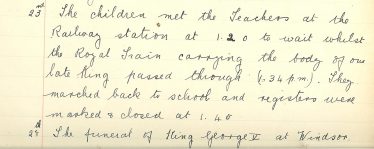 23rd The children met the Teachers at the
Railway station at 1.20 to wait whilst
the Royal Train carrying the body of our
late King passed through (1.34 p.m). They
marched back to school and registers were
marked & closed at 1.40
28th The funeral of King George V at Windsor